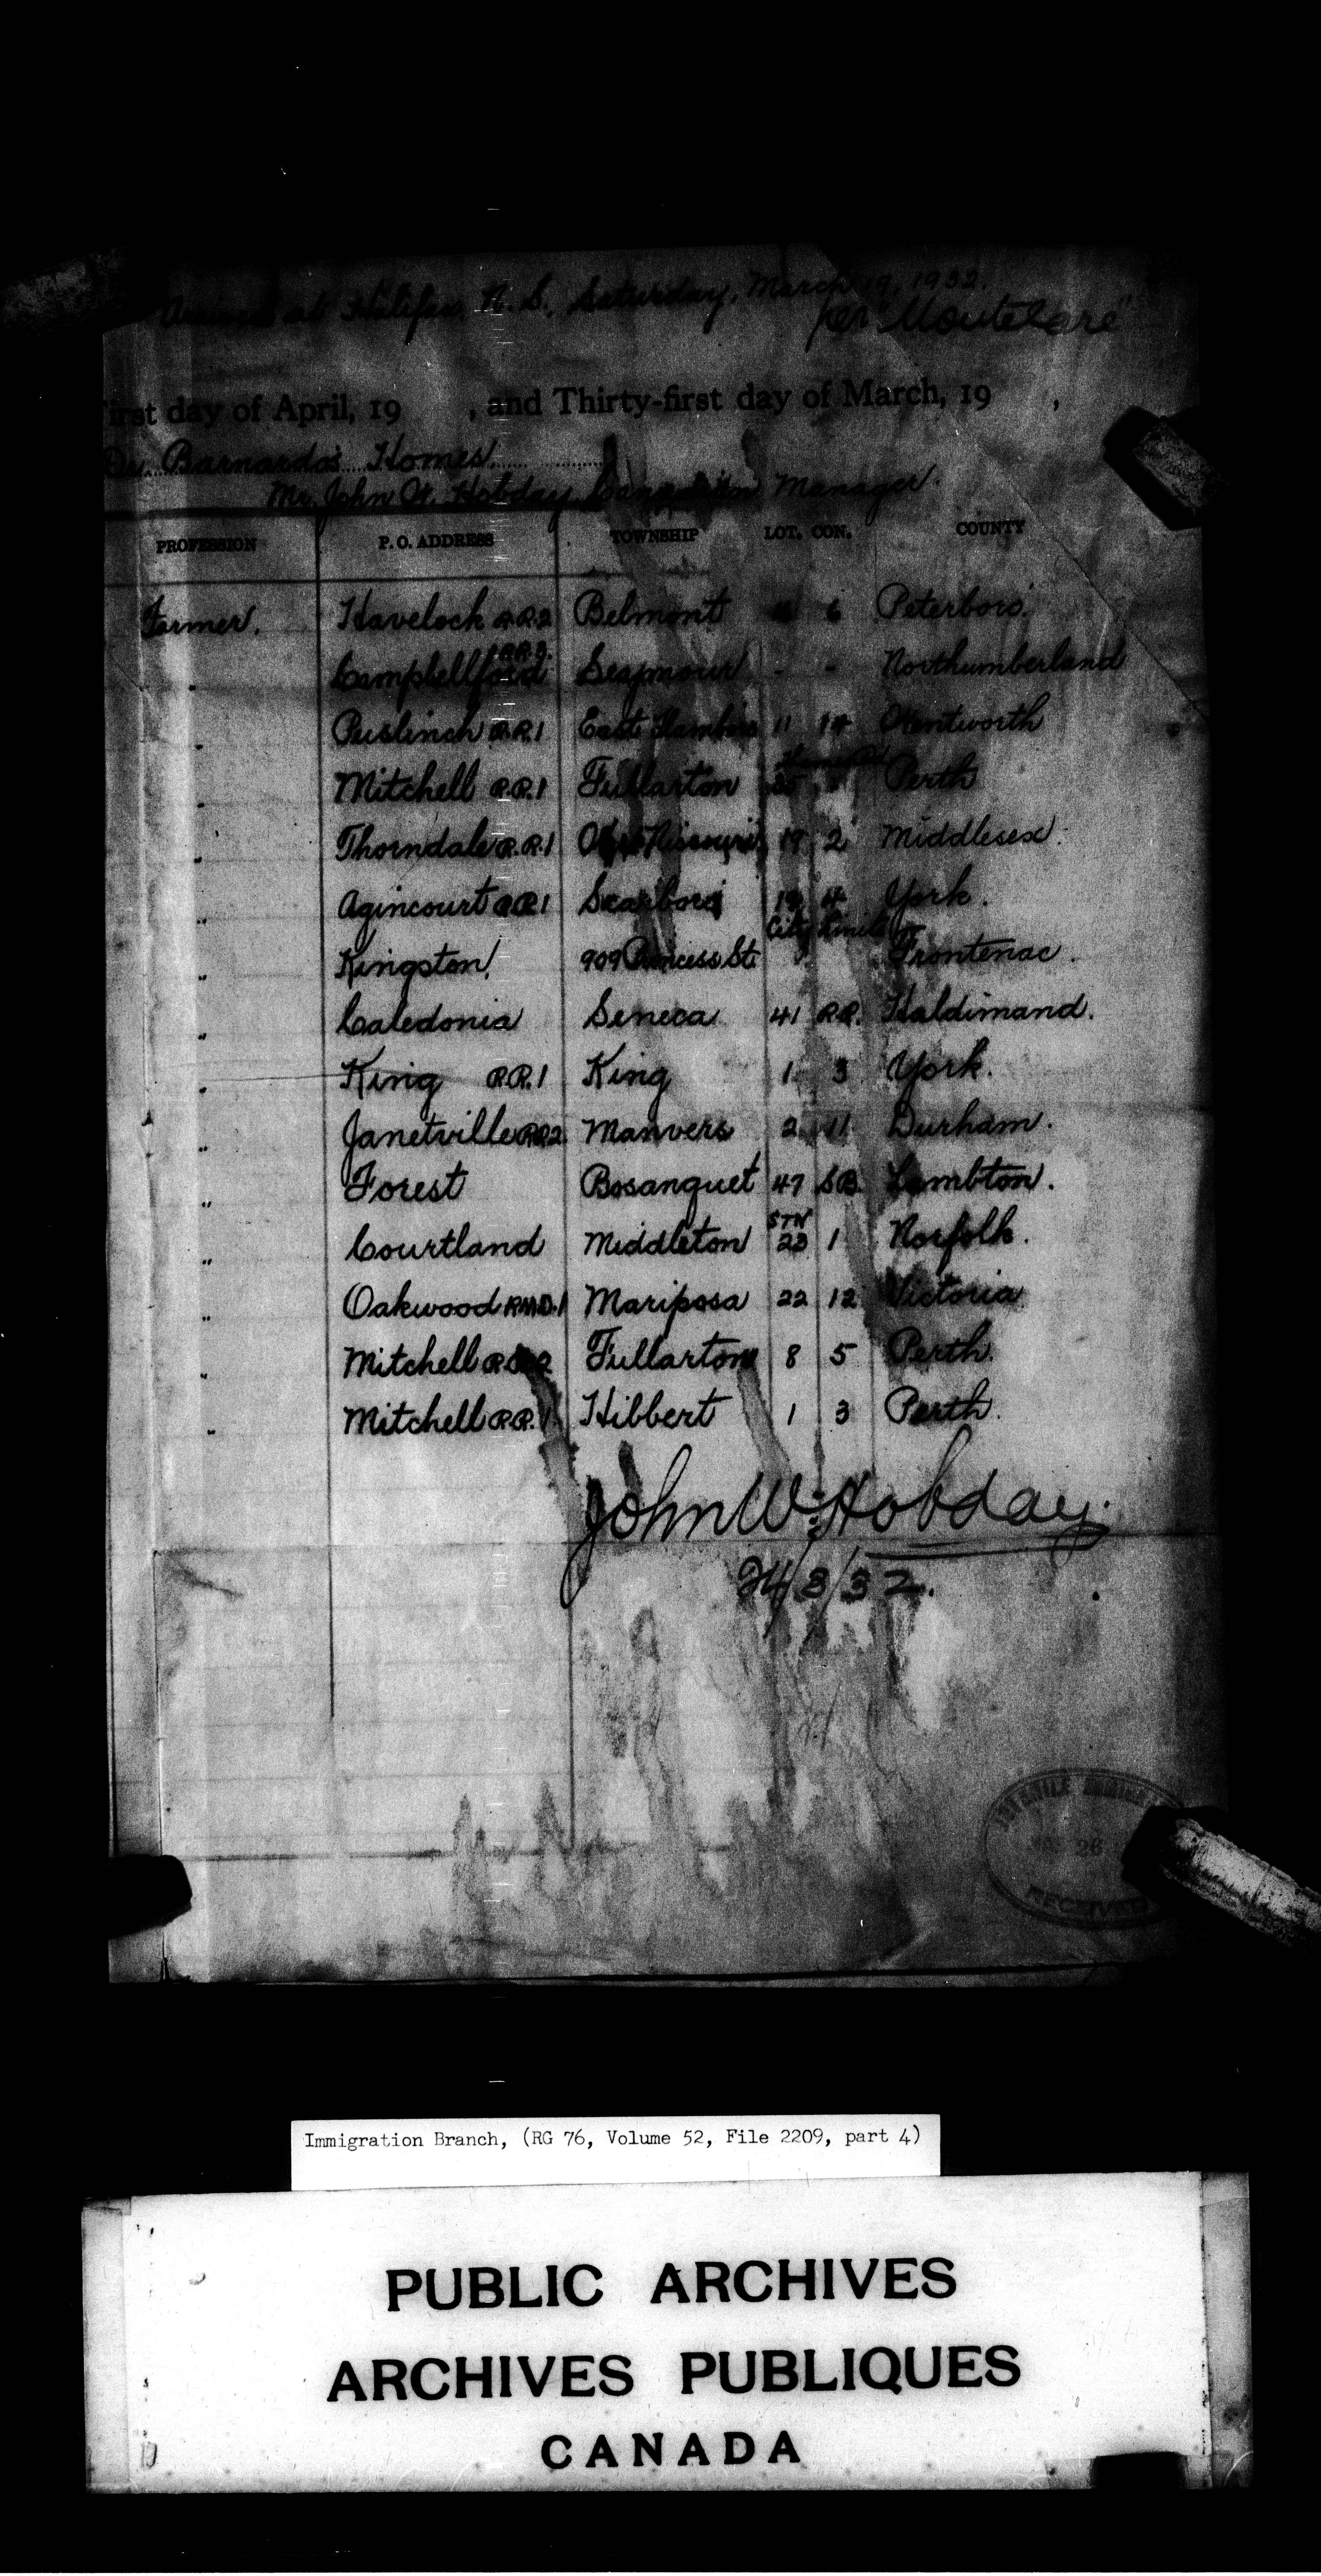 Arrived at Halifax N.S., Saturday, March 19, 1932.
per "Montclare"
First day of April, 19 , and Thirty-first day of March, 19 ,
Dr. Barnardo's Homes.
Mr. John W. Hobday, Canadian Manager.
PROFESSION P. O. ADDRESS TOWNSHIP LOT. CON. COUNTY
Farmer. Havelock R.R.2 Belmont 6 Peterboro.
" Campbellford R.R.3. Seymour - - Northumberland
" Puslinch R.R.1 East Flamboro 11 14 Wentworth
" Mitchell R.R.1 Fullarton Perth
" Thorndale R.R.1 West Nissouri 19 2 Middlesex.
" Agincourt R.R.1 Scarboro 4 York.
City Limits
" Kingston 909 Princess St. Frontenac.
" Caledonia Seneca 41 R.R. Haldimand.
" King R.R.1 King 1 3 York.
" Janetville R.R.2. Manvers 2 11 Durham.
" Forest Bosanquet 47 S.B. Lambton.
" Courtland Middleton STN 23 1 Norfolk.
" Oakwood R.M.D.1 Mariposa 22 12 Victoria
" Mitchell Fullarton 8 5 Perth.
" Mitchell R.R.1 Hibbert 1 3 Perth.
John W. Hobday.
24/3/32.
JUVENILE IMMIGRATION
26
RECEIVED
Immigration Branch, (RG 76, Volume 52, File 2209, part 4)
PUBLIC ARCHIVES
ARCHIVES PUBLIQUES
CANADA